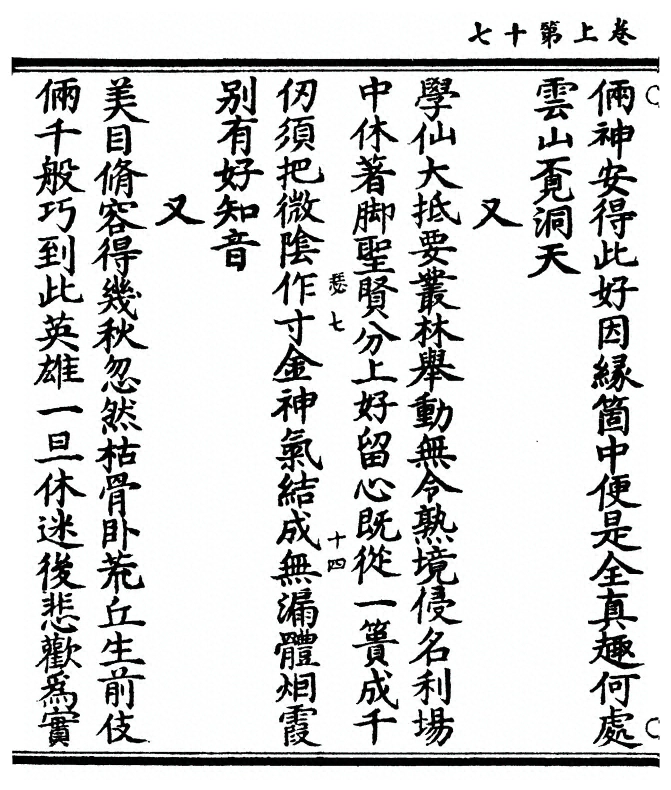 卷上第十七
倆神安得此好因緣箇中便是全真趣何處
雲山覔洞天
又
學仙大抵要叢林舉動無令熟境侵名利場
中休著脚聖賢分上好留心既從一簣成千
瑟七
十四
仞須把微陰作寸金神氣結成無漏體烟霞
别有好知音
又
美目脩容得幾秋忽然枯骨卧荒丘生前伎
倆千般巧到此英雄一旦休迷後悲歡爲實